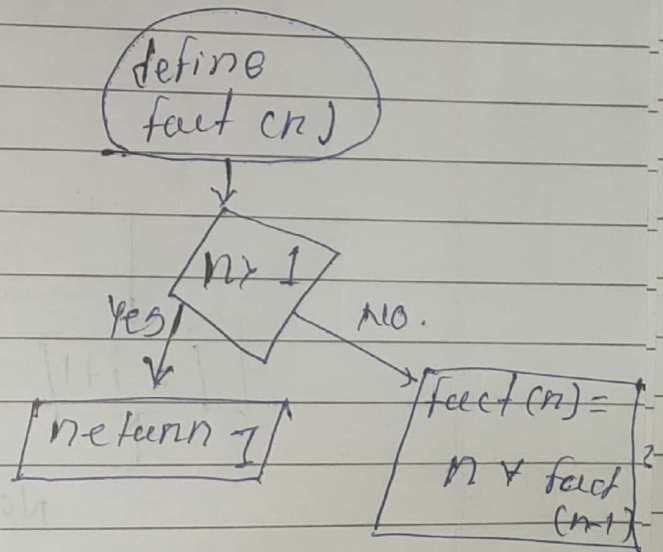 define
fact (n)
n > 1
Yes
No.
return 1
fact(n) =
n * fact
(n-1)